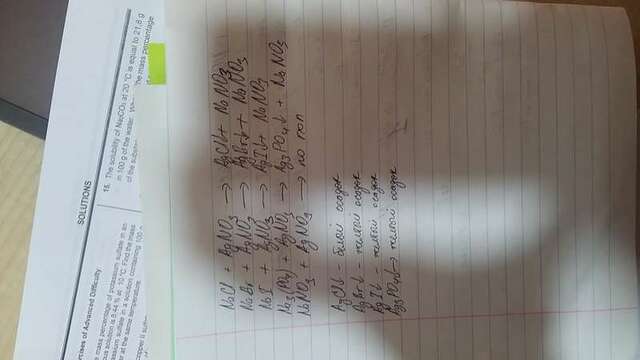 SOLUTIONS
rcises of Advanced Difficulty
e mass percentage of potassium sulfate in an
ous solution is 8.44 % at 10 °C. Find the mass
assium sulfate in a solution containing 100 g
er at the same temperature.
copper II
15. The solubility of Na₂CO₃ at 20 °C is equal to 21.8 g
in 100 g of the water. the mass percentage
of the
NaCl + AgNO₃ → AgCl↓ + NaNO₃
NaBr + AgNO₃ → AgBr↓ + NaNO₃
NaI + AgNO₃ → AgI↓ + NaNO₃
Na₃(PO₄) + AgNO₃ → Ag₃PO₄↓ + NaNO₃
NaNO₃ + AgNO₃ → no
AgCl↓ - белый осадок
AgBr↓ - желтый осадок
AgI↓ - желтый осадок
Ag₃PO₄↓ → желтый осадок